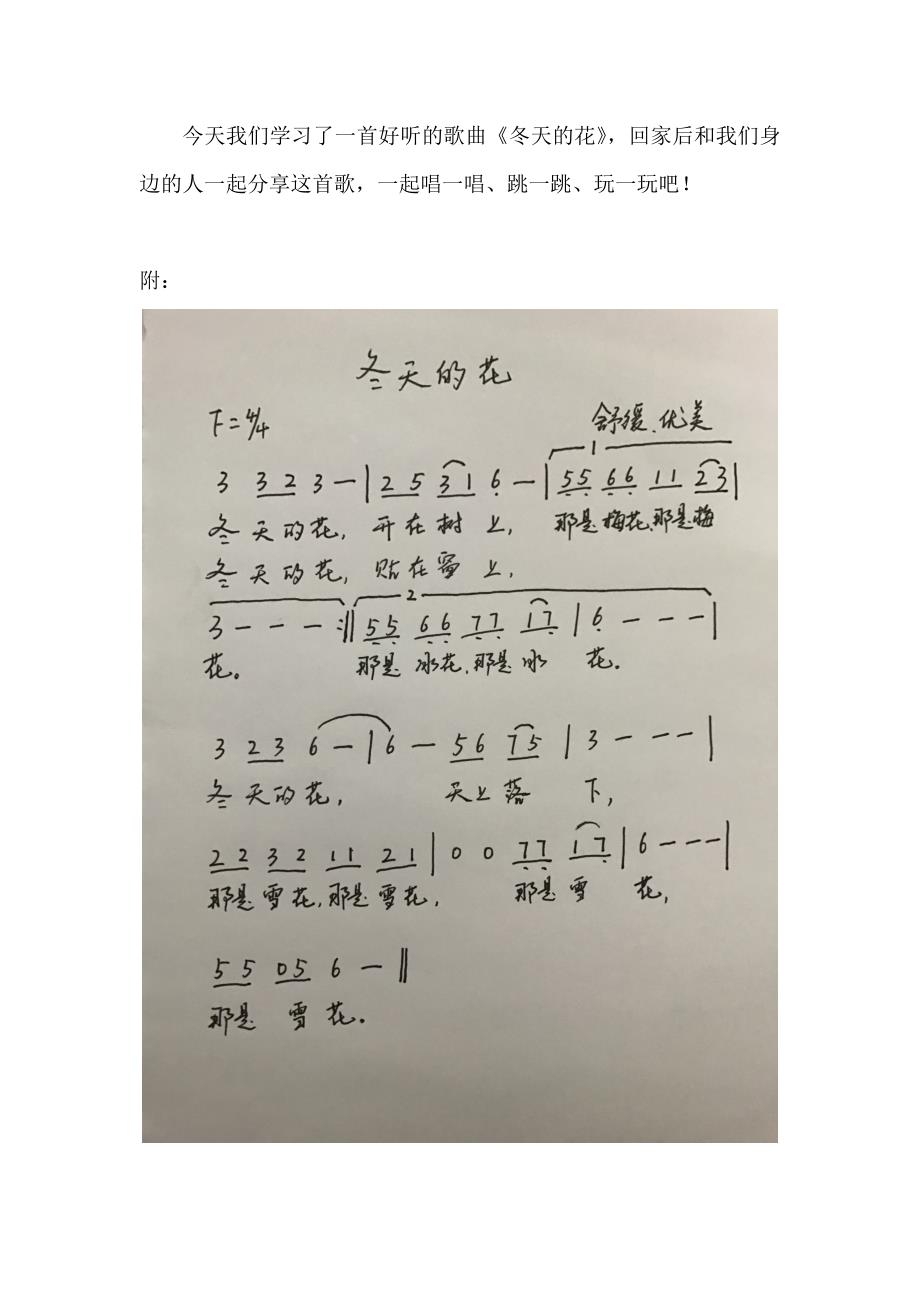 今天我们学习了一首好听的歌曲《冬天的花》，回家后和我们身
边的人一起分享这首歌，一起唱一唱、跳一跳、玩一玩吧！
附：
冬天的花
下=4/4 舒缓、优美
1
3 3 2 3 — | 2 5 3 1 6 — | 5 5 6 6 1 1 2 3 |
冬天的花，开在树上，那是梅花，那是梅
冬天的花，贴在窗上，
2
3 - - - :|| 5 5 6 6 7 7 1 7 | 6 - - - |
花。 那是冰花，那是冰 花。
3 2 3 6 — | 6 — 5 6 7 5 | 3 - - - |
冬天的花， 天上落 下，
2 2 3 2 1 1 2 1 | 0 0 7 7 1 7 | 6 - - - |
那是雪花，那是雪花， 那是雪 花，
5 5 0 5 6 — ||
那是 雪花。